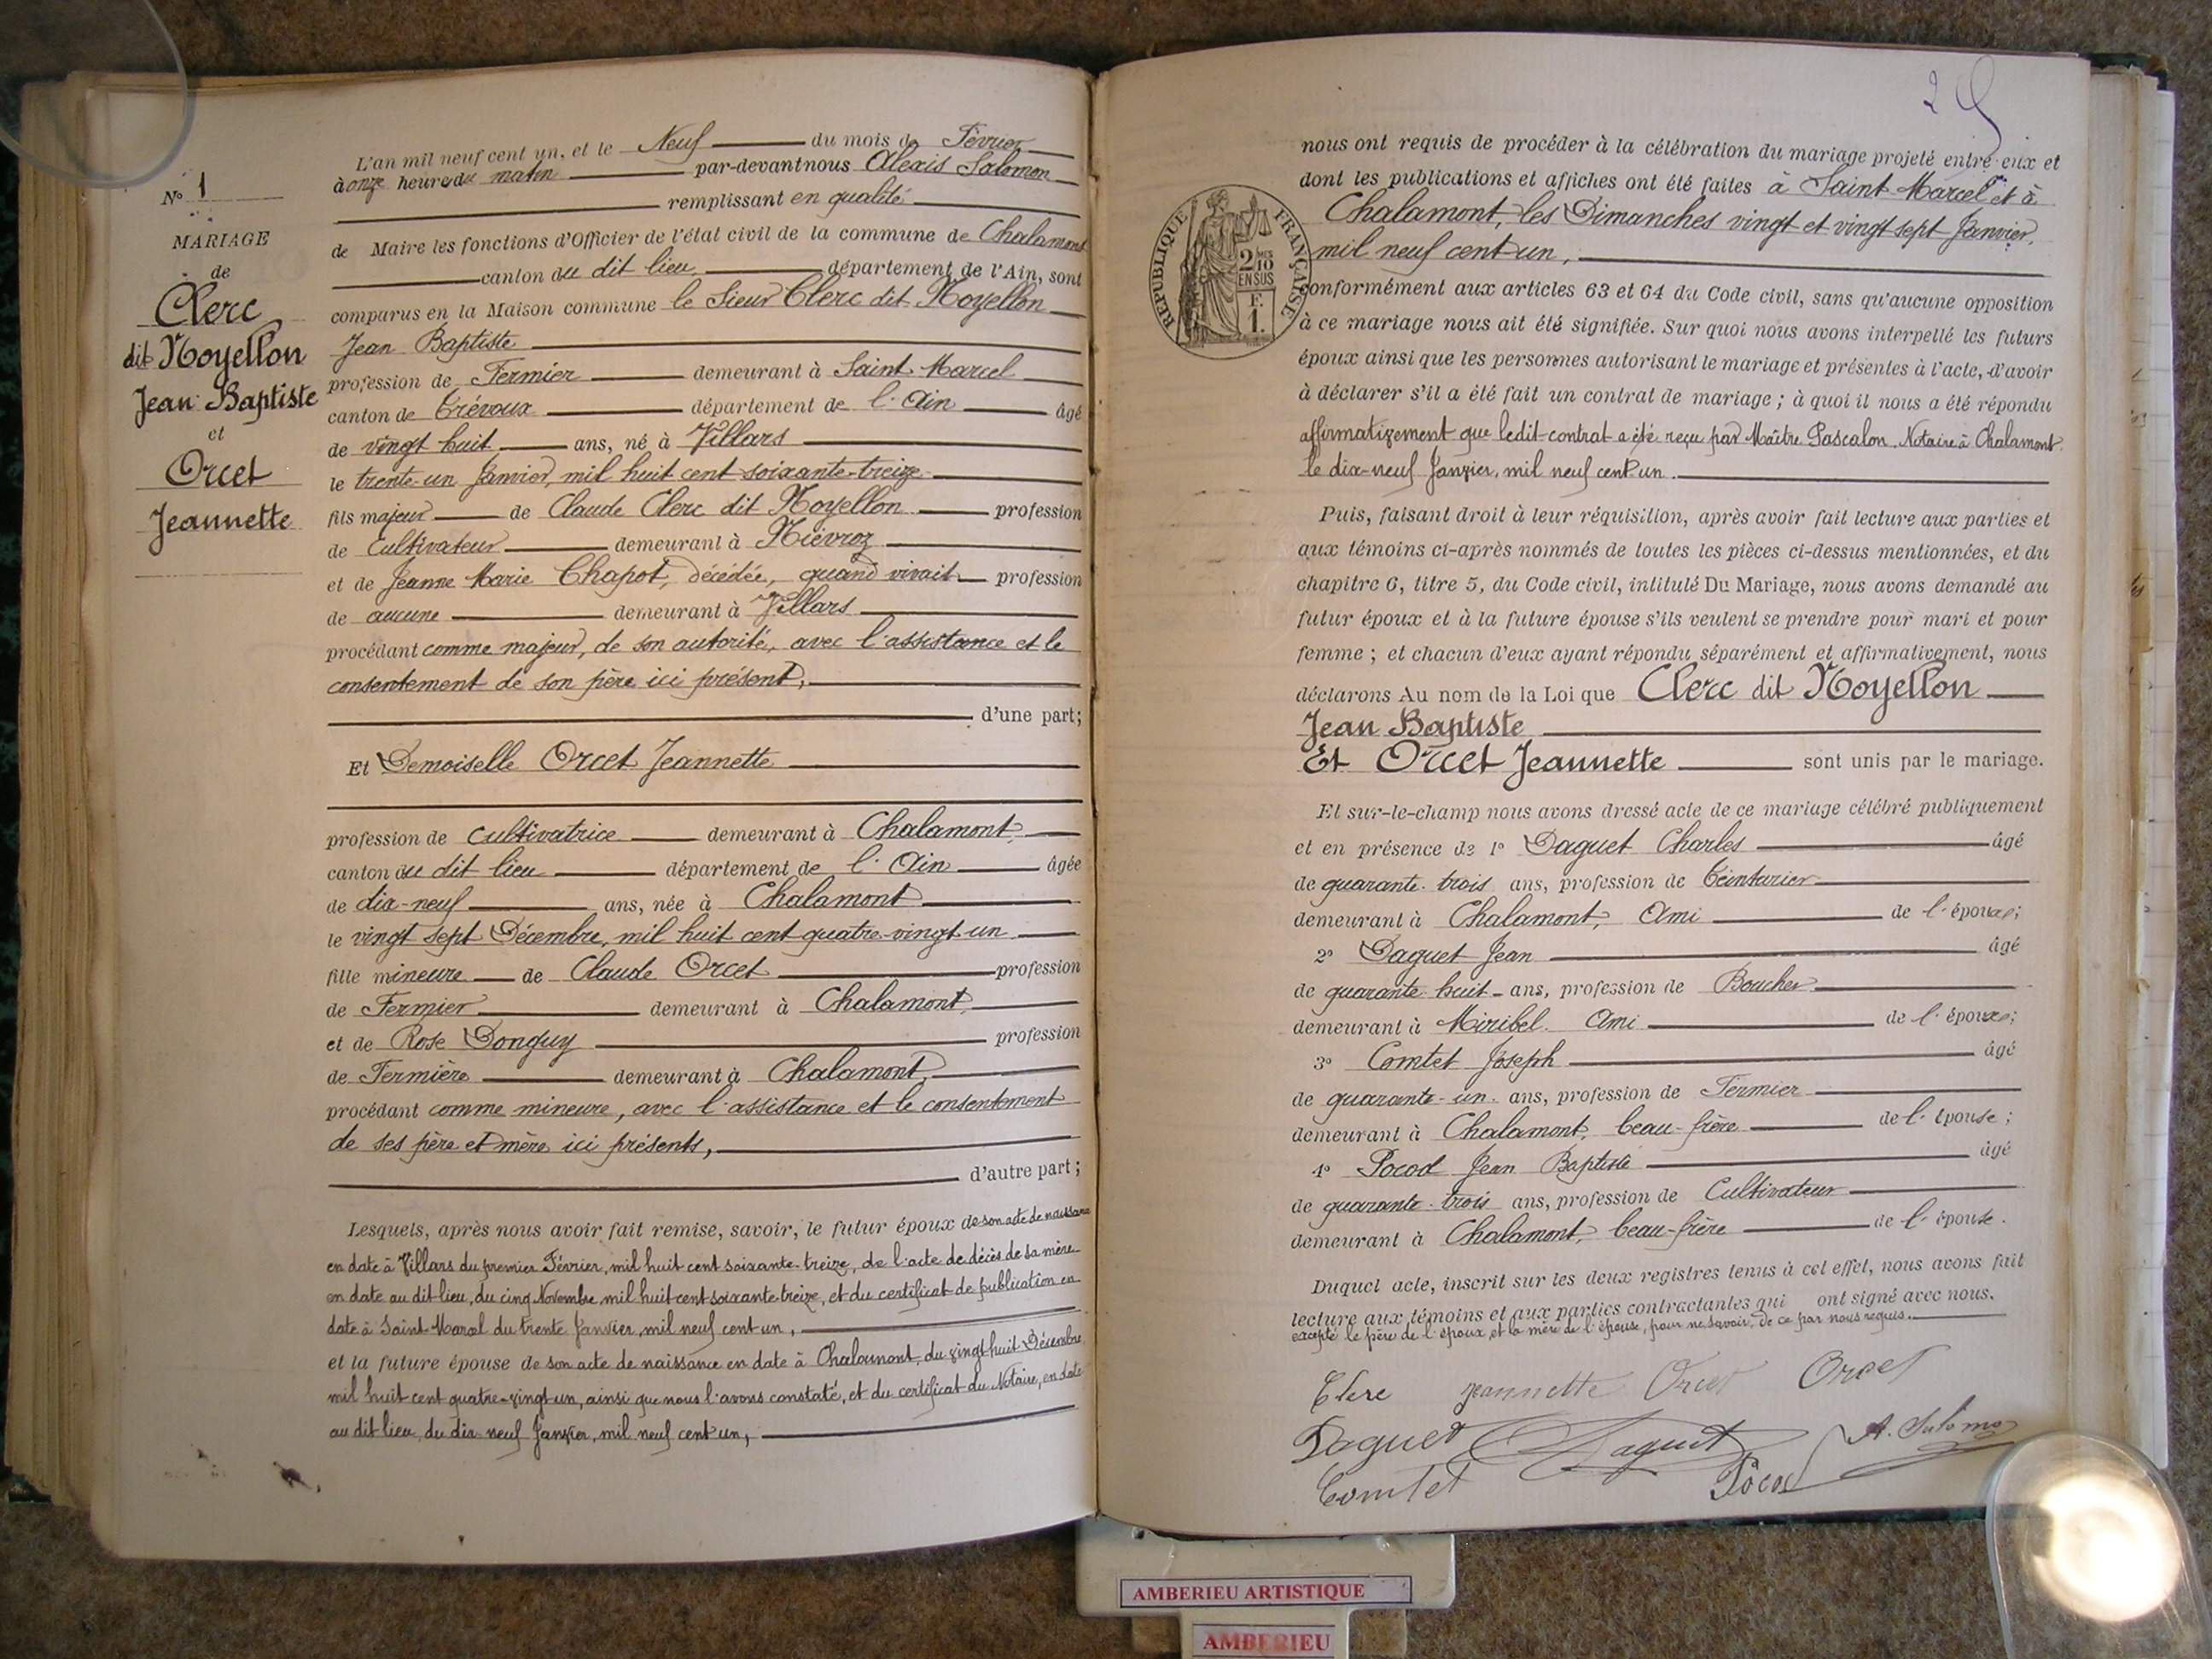 L'an mil neuf cent un, et le Neuf du mois de Février
à onze heures du matin par-devant nous Alexis Salomon
remplissant en qualité
de Maire les fonctions d'Officier de l'état civil de la commune de Chalamont
canton du dit lieu département de l'Ain, sont
comparus en la Maison commune le Sieur Clerc dit Noyellon
Jean Baptiste
profession de Fermier demeurant à Saint-Marcel
canton de Trévoux département de l'Ain âgé
de vingt huit ans, né à Villars
le trente-un Janvier, mil huit cent soixante-treize
fils majeur de Claude Clerc dit Noyellon profession
de Cultivateur demeurant à Niévroz
et de Jeanne Marie Chapot, décédée, quand vivait profession
de aucune demeurant à Villars
procédant comme majeur, de son autorité, avec l'assistance et le
consentement de son père ici présent,
d'une part;
Et Demoiselle Orcet Jeannette
profession de Cultivatrice demeurant à Chalamont,
canton du dit lieu département de l'Ain âgée
de dix-neuf ans, née à Chalamont
le vingt sept Décembre, mil huit cent quatre-vingt-un
fille mineure de Claude Orcet profession
de Fermier demeurant à Chalamont,
et de Rose Donguy profession
de Fermière demeurant à Chalamont,
procédant comme mineure, avec l'assistance et le consentement
de ses père et mère ici présents,
d'autre part;
Lesquels, après nous avoir fait remise, savoir, le futur époux de son acte de naissance
en date à Villars du premier Février, mil huit cent soixante-treize, de l'acte de décès de sa mère
en date au dit lieu, du cinq Novembre, mil huit cent soixante-treize, et du certificat de publication en
date à Saint-Marcel du trente Janvier, mil neuf cent un,
et la future épouse de son acte de naissance en date à Chalamont, du vingt huit Décembre
mil huit cent quatre-vingt-un, ainsi que nous l'avons constaté, et du certificat du Notaire, en date
au dit lieu, du dix neuf Janvier, mil neuf cent un,
No 1
MARIAGE
de
Clerc
dit Noyellon
Jean Baptiste
et
Orcet
Jeannette
nous ont requis de procéder à la célébration du mariage projeté entre eux et
dont les publications et affiches ont été faites à Saint-Marcel et à
Chalamont, les Dimanches vingt et vingt sept Janvier,
mil neuf cent un,
REPUBLIQUE FRANÇAISE
2 MES
10
EN SUS
F.
1.
conformément aux articles 63 et 64 du Code civil, sans qu'aucune opposition
à ce mariage nous ait été signifiée. Sur quoi nous avons interpellé les futurs
époux ainsi que les personnes autorisant le mariage et présentes à l'acte, d'avoir
à déclarer s'il a été fait un contrat de mariage; à quoi il nous a été répondu
affirmativement que ledit contrat a été reçu par Maître Pascalon, Notaire à Chalamont
le dix-neuf Janvier, mil neuf cent un.
Puis, faisant droit à leur réquisition, après avoir fait lecture aux parties et
aux témoins ci-après nommés de toutes les pièces ci-dessus mentionnées, et du
chapitre 6, titre 5, du Code civil, intitulé Du Mariage, nous avons demandé au
futur époux et à la future épouse s'ils veulent se prendre pour mari et pour
femme; et chacun d'eux ayant répondu séparément et affirmativement, nous
déclarons Au nom de la Loi que Clerc dit Noyellon
Jean Baptiste
Et Orcet Jeannette sont unis par le mariage.
Et sur-le-champ nous avons dressé acte de ce mariage célébré publiquement
et en présence de 1º Daguet Charles âgé
de quarante-trois ans, profession de Teinturier
demeurant à Chalamont, Ami de l'époux;
2º Daguet Jean âgé
de quarante-huit ans, profession de Boucher
demeurant à Miribel. Ami de l'époux;
3º Comtet Joseph âgé
de quarante-un ans, profession de Fermier
demeurant à Chalamont, beau-frère de l'épouse;
4º Pocod Jean Baptiste âgé
de quarante-trois ans, profession de Cultivateur
demeurant à Chalamont, beau-frère de l'épouse.
Duquel acte, inscrit sur les deux registres tenus à cet effet, nous avons fait
lecture aux témoins et aux parties contractantes qui ont signé avec nous.
excepté le père de l'époux et la mère de l'épouse, pour ne savoir, de ce par nous requis.
Clerc Jeannette Orcet Orcet
Daguet Daguet A. Salomon
Comtet Pocod
AMBERIEU ARTISTIQUE
AMBERIEU